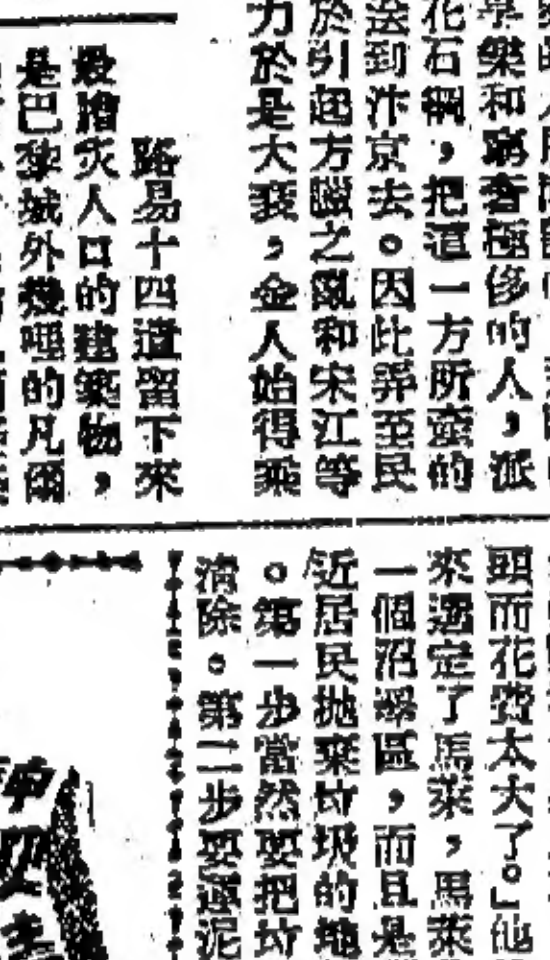 享樂和窮奢極侈的人，派
花石綱，把這一方所產的
送到汴京去。因此弄至民
於引起方臘之亂和宋江等
力於是大衰，金人始得乘
路易十四遺留下來
最膾炙人口的建築物，
是巴黎城外幾哩的凡爾
頭而花費太大了。」他
來選定了馬萊，馬萊
一個沼澤區，而且是
近居民拋棄垃圾的地
。第一步當然要把垃
清除。第二步要運泥